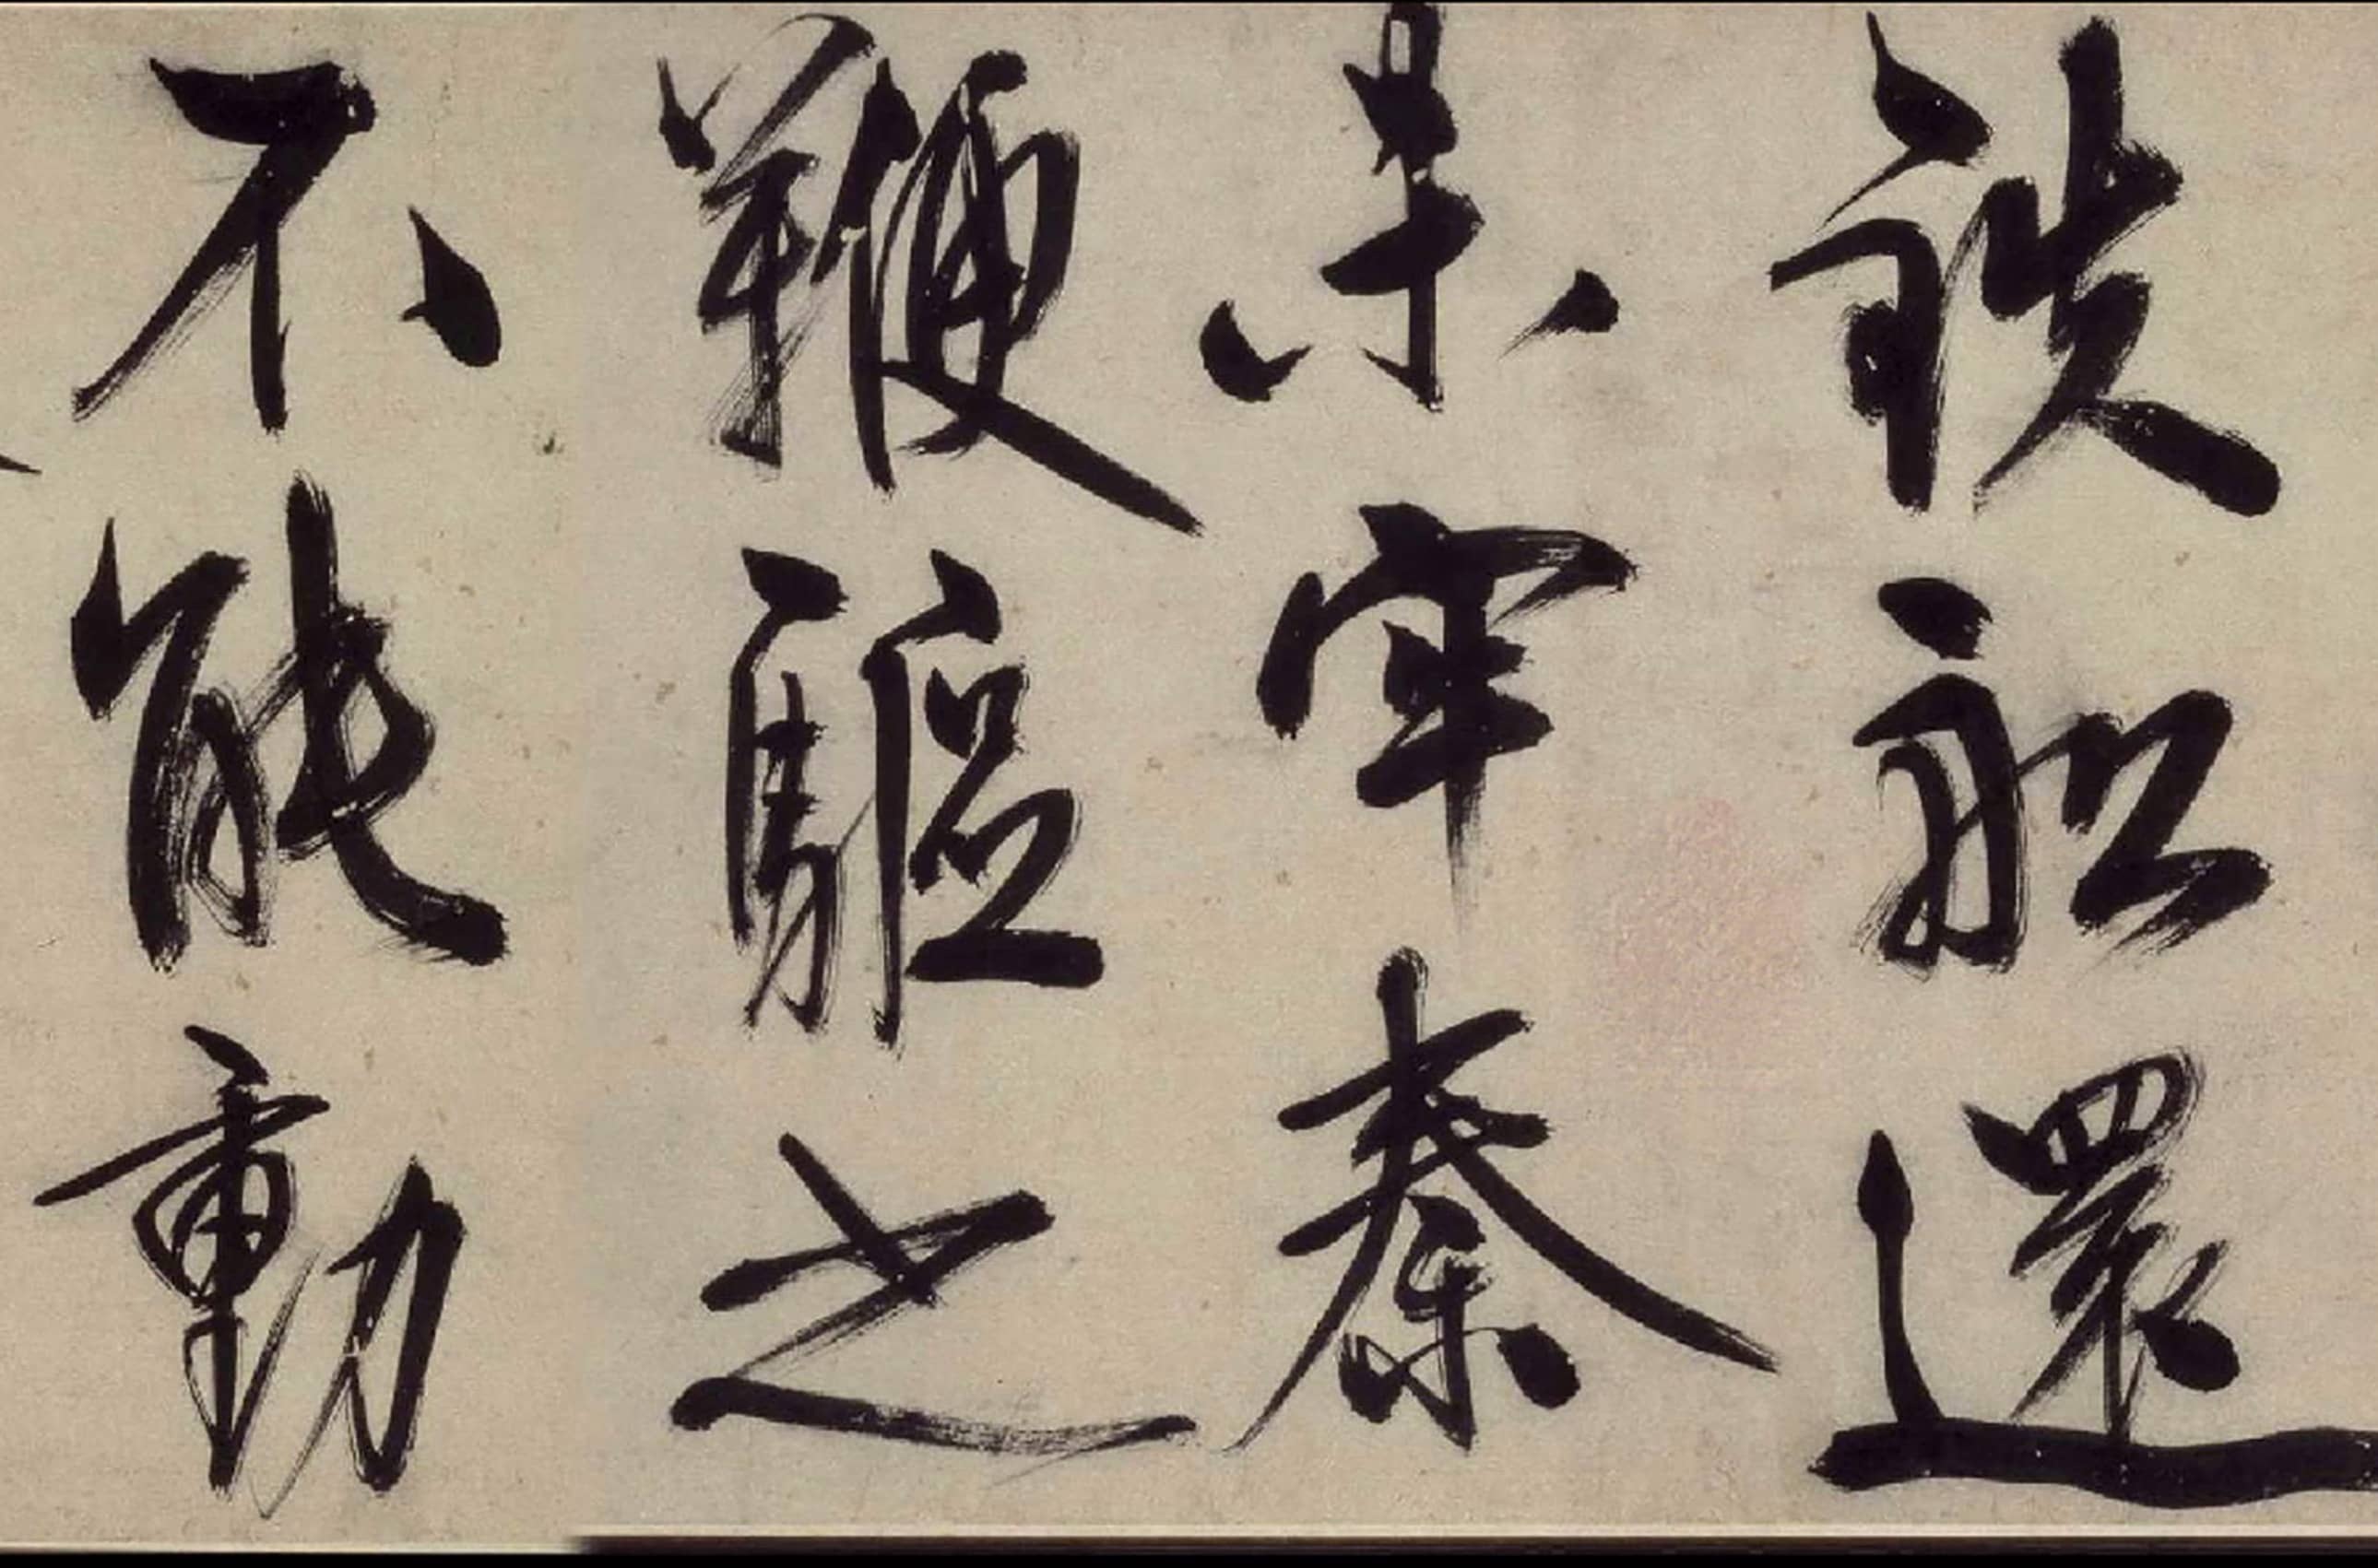 鉄舩還
未牢秦
鞭驅之
不能動